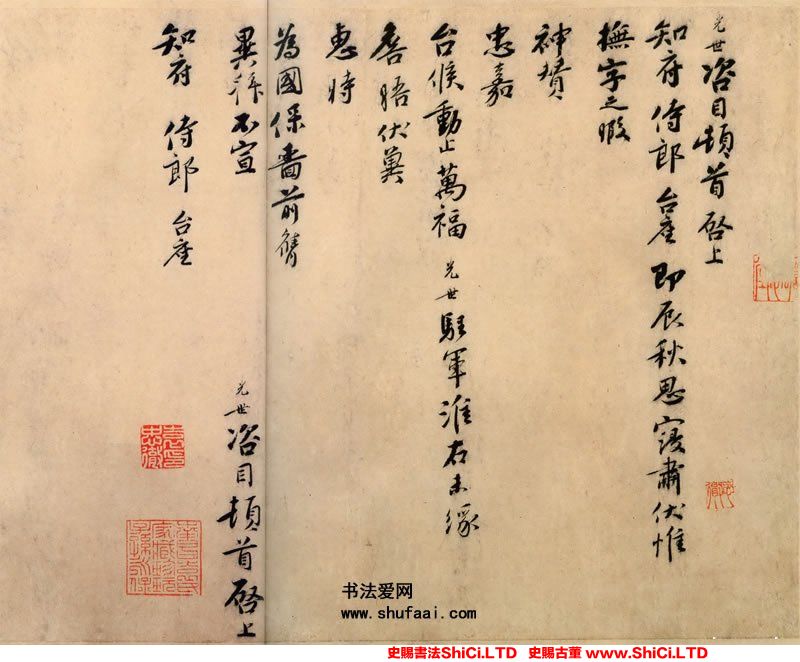 光世咨目頓首啓上
知府侍郎台座即辰秋思寖肅伏惟
撫字之暇
神賛
忠嘉
台候動止萬福光世駐軍淮右未緣
展晤伏冀
惠時
為國保嗇前膺
異拜不宣
光世咨目頓首啓上
知府侍郎台座
袁忠徹印
书法爱网
www.shufaai.com
史賜書法ShiCi.LTD 史賜古董 www.ShiCi.LTD